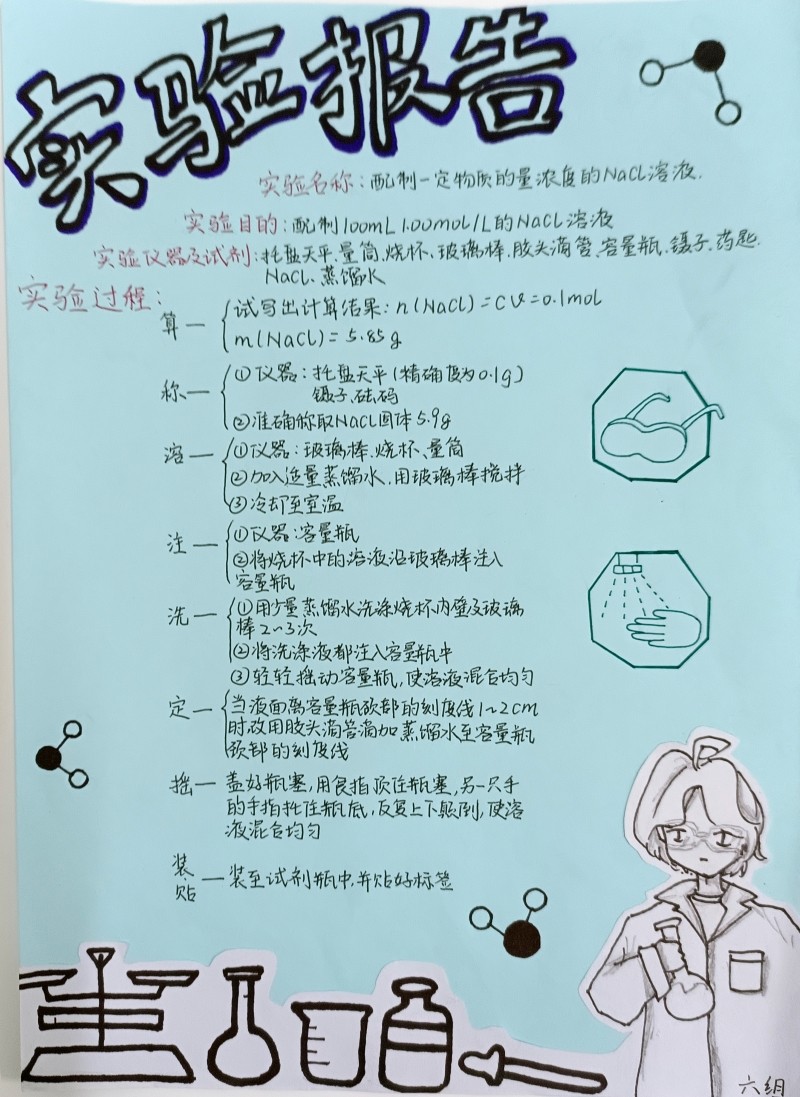 实验报告
实验名称：配制一定物质的量浓度的NaCl溶液.
实验目的：配制100mL 1.00mol/L的NaCl溶液
实验仪器及试剂：托盘天平、量筒、烧杯、玻璃棒、胶头滴管、容量瓶、镊子、药匙.
NaCl、蒸馏水
实验过程：
算— 试写出计算结果：n(NaCl)=CV=0.1mol
m(NaCl)=5.85g
称— ①仪器：托盘天平(精确度为0.1g)
镊子、砝码
②准确称取NaCl固体5.9g
溶— ①仪器：玻璃棒、烧杯、量筒
②加入适量蒸馏水，用玻璃棒搅拌
③冷却至室温
注— ①仪器：容量瓶
②将烧杯中的溶液沿玻璃棒注入
容量瓶
洗— ①用少量蒸馏水洗涤烧杯内壁及玻璃
棒2~3次
②将洗涤液都注入容量瓶中
③轻轻摇动容量瓶，使溶液混合均匀
定— 当液面离容量瓶颈部的刻度线1~2cm
时改用胶头滴管滴加蒸馏水至容量瓶
颈部的刻度线
摇— 盖好瓶塞，用食指顶住瓶塞，另一只手
的手指托住瓶底，反复上下颠倒，使溶
液混合均匀
装、贴 — 装至试剂瓶中，并贴好标签
六组